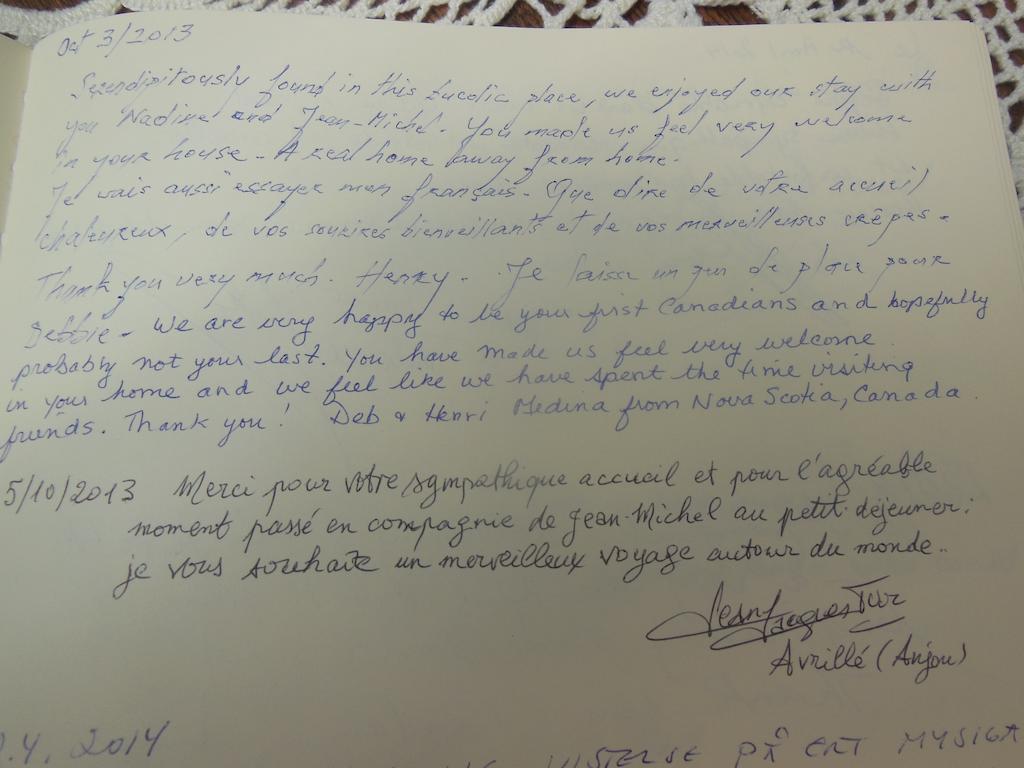 Oct 3/2013
Serendipitously found in this bucolic place, we enjoyed our stay with
you Nadine and Jean-Michel. You made us feel very welcome
in your house - A real home away from home.
Je vais aussi essayer mon français - Que dire de votre accueil
chaleureux, de vos sourires bienveillants et de vos merveilleuses crêpes -
Thank you very much. Henry - Je laisse un peu de place pour
Debbie - We are very happy to be your first Canadians and hopefully
probably not your last. You have made us feel very welcome
in your home and we feel like we have spent the time visiting
friends. Thank you! Deb & Henri Medina from Nova Scotia, Canada.
5/10/2013 Merci pour votre sympathique accueil et pour l'agréable
moment passé en compagnie de Jean-Michel au petit-déjeuner:
je vous souhaite un merveilleux voyage autour du monde..
Jean Jacques
Avrillé (Anjou)
.4. 2014
PÅ ERT MYSIGA